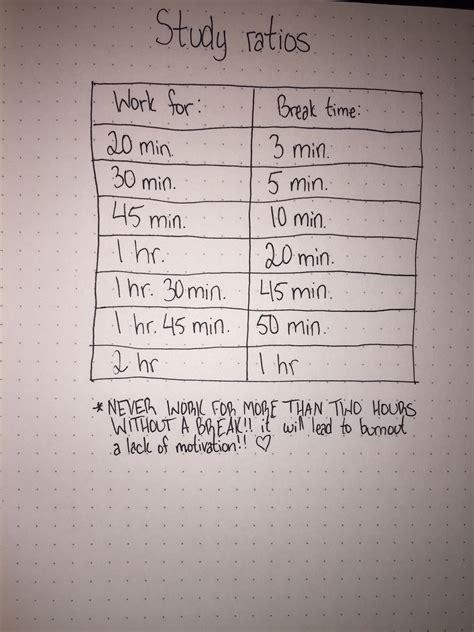 Study ratios
Work for: Break time:
20 min. 3 min.
30 min. 5 min.
45 min. 10 min.
1 hr. 20 min.
1 hr. 30 min. 45 min.
1 hr. 45 min. 50 min.
2 hr 1 hr
* NEVER WORK FOR MORE THAN TWO HOURS
WITHOUT A BREAK!! it will lead to burnout
a lack of motivation!! ♡